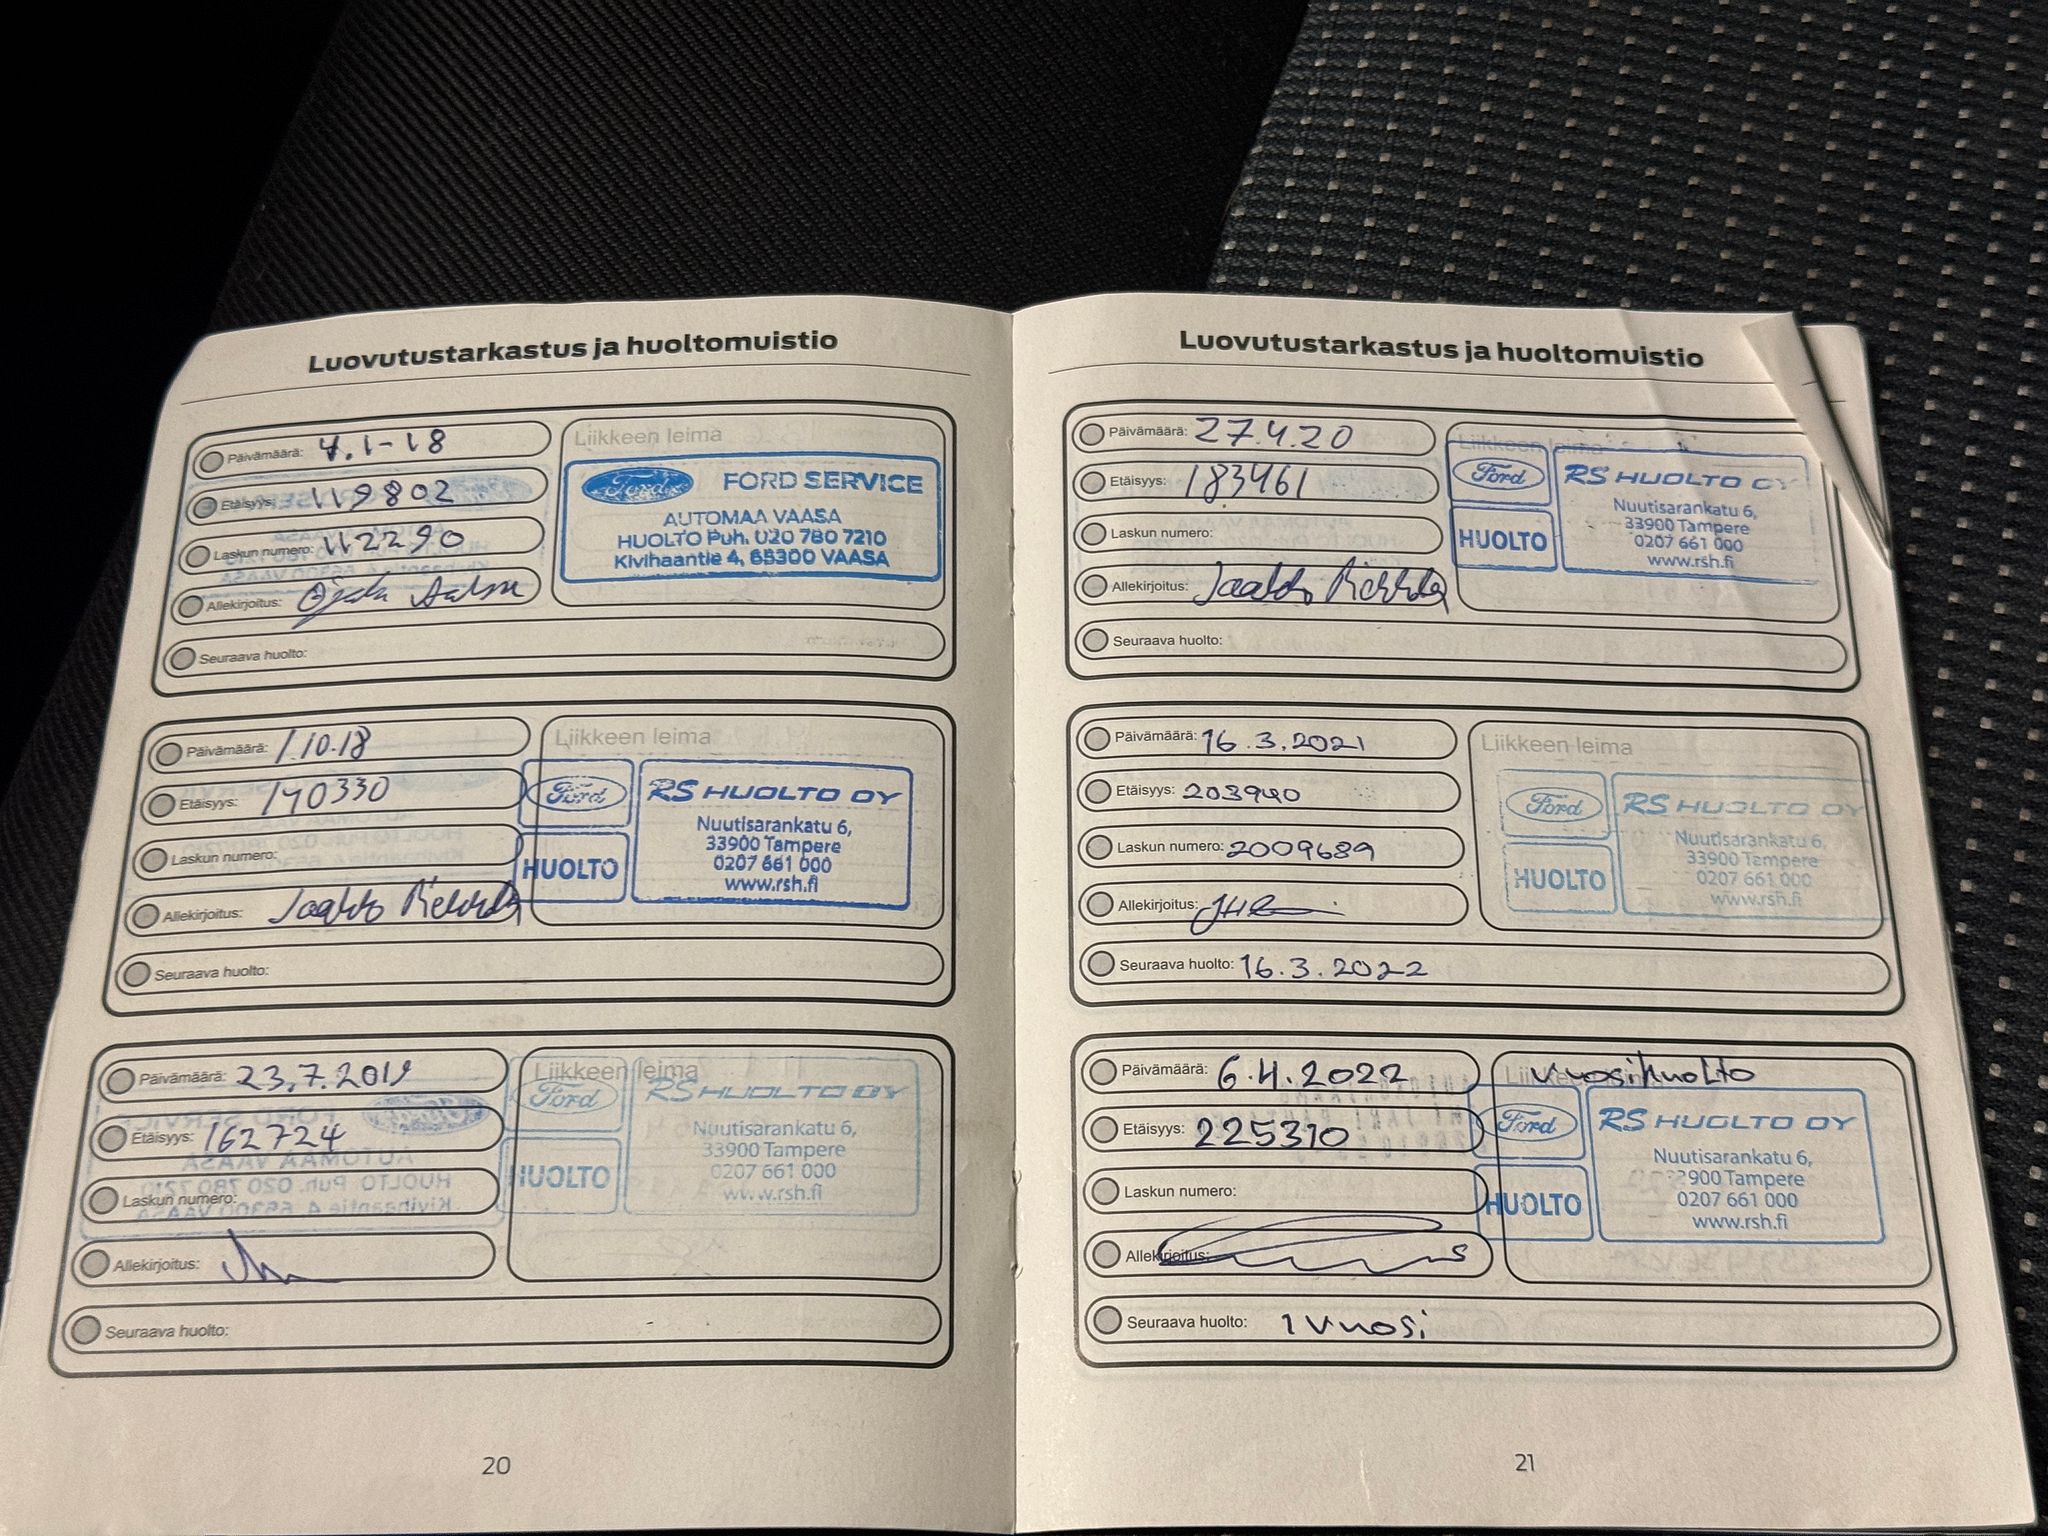 Luovutustarkastus ja huoltomuistio
Päivämäärä: 4.1-18
Etäisyys: 119802
Laskun numero: 112290
Allekirjoitus:
Seuraava huolto:
Liikkeen leima
Ford FORD SERVICE
AUTOMAA VAASA
HUOLTO Puh. 020 780 7210
Kivihaantie 4, 65300 VAASA
Päivämäärä: 1.10.18
Etäisyys: 140330
Laskun numero:
Allekirjoitus: Jaakko
Seuraava huolto:
Liikkeen leima
Ford
HUOLTO
RS HUOLTO OY
Nuutisarankatu 6,
33900 Tampere
0207 661 000
www.rsh.fi
Päivämäärä: 23.7.2019
Etäisyys: 162724
Laskun numero:
Allekirjoitus:
Seuraava huolto:
Liikkeen leima
Ford
HUOLTO
RS HUOLTO OY
Nuutisarankatu 6,
33900 Tampere
0207 661 000
www.rsh.fi
20
Luovutustarkastus ja huoltomuistio
Päivämäärä: 27.4.20
Etäisyys: 183461
Laskun numero:
Allekirjoitus: Jaakko
Seuraava huolto:
Liikkeen leima
Ford
HUOLTO
RS HUOLTO OY
Nuutisarankatu 6,
33900 Tampere
0207 661 000
www.rsh.fi
Päivämäärä: 16.3.2021
Etäisyys: 203940
Laskun numero: 2009689
Allekirjoitus:
Seuraava huolto: 16.3.2022
Liikkeen leima
Ford
HUOLTO
RS HUOLTO OY
Nuutisarankatu 6,
33900 Tampere
0207 661 000
www.rsh.fi
Päivämäärä: 6.4.2022
Etäisyys: 225310
Laskun numero:
Allekirjoitus:
Seuraava huolto: 1 vuosi
vuosihuolto
Ford
HUOLTO
RS HUOLTO OY
Nuutisarankatu 6,
33900 Tampere
0207 661 000
www.rsh.fi
21